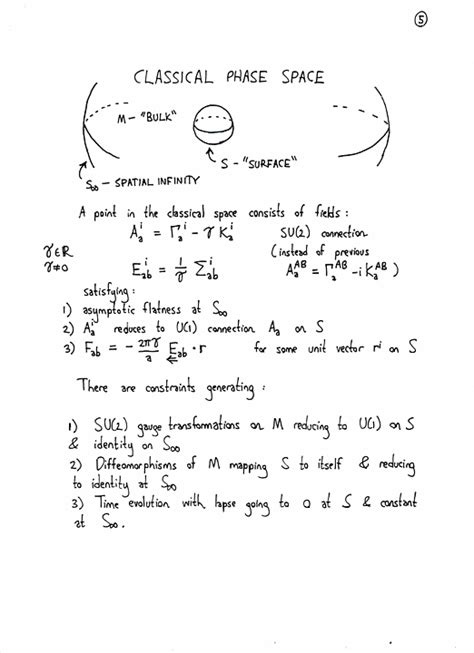 ⑤
CLASSICAL PHASE SPACE
M – "BULK"
S – "SURFACE"
S∞ – SPATIAL INFINITY
A point in the classical space consists of fields :
A_a^i = Γ_a^i - γ K_a^i    SU(2) connection
γ∈R    (instead of previous
γ≠0    E_ab^i = 1/γ Σ_ab^i    A_a^AB = Γ_a^AB - i K_a^AB )
satisfying :
1) asymptotic flatness at S∞
2) A_a^i reduces to U(1) connection A_a on S
3) F_ab = - 2πγ/a E_ab · r    for some unit vector r^i on S
There are constraints generating :
1) SU(2) gauge transformations on M reducing to U(1) on S
& identity on S∞
2) Diffeomorphisms of M mapping S to itself & reducing
to identity at S∞
3) Time evolution with lapse going to 0 at S & constant
at S∞.